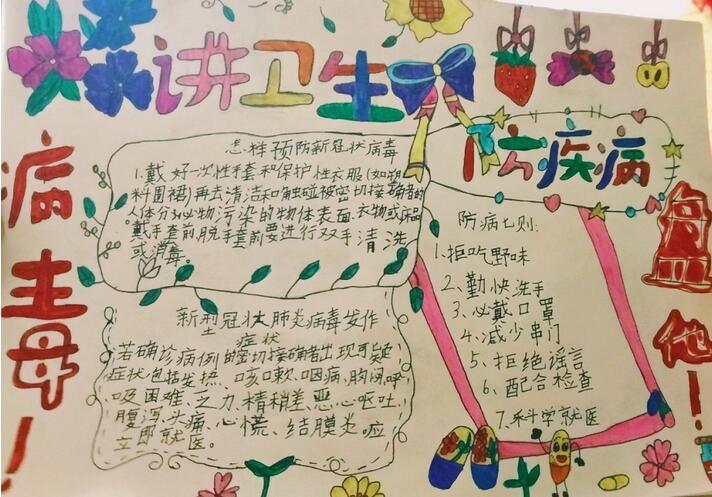 讲卫生
防疾病
病毒！
他！
怎样预防新冠状病毒
1.戴好一次性手套和保护性衣服(如塑
料围裙)再去清洁和触碰被密切接触者的
人体分泌物污染的物体表面、衣物或床品
。戴手套前、脱手套前要进行双手清洗
或消毒。
防病七则:
1.拒吃野味
2、勤快洗手
3、必戴口罩
4、减少串门
5、拒绝谣言
6、配合检查
7.科学就医
新型冠状肺炎病毒发作
症状
若确诊病例的密切接触者出现可疑
症状包括发热、咳嗽、咽痛、胸闷、呼
吸困难、乏力、精稍差、恶心呕吐、
腹泻、头痛、心慌、结膜炎应
立即就医。